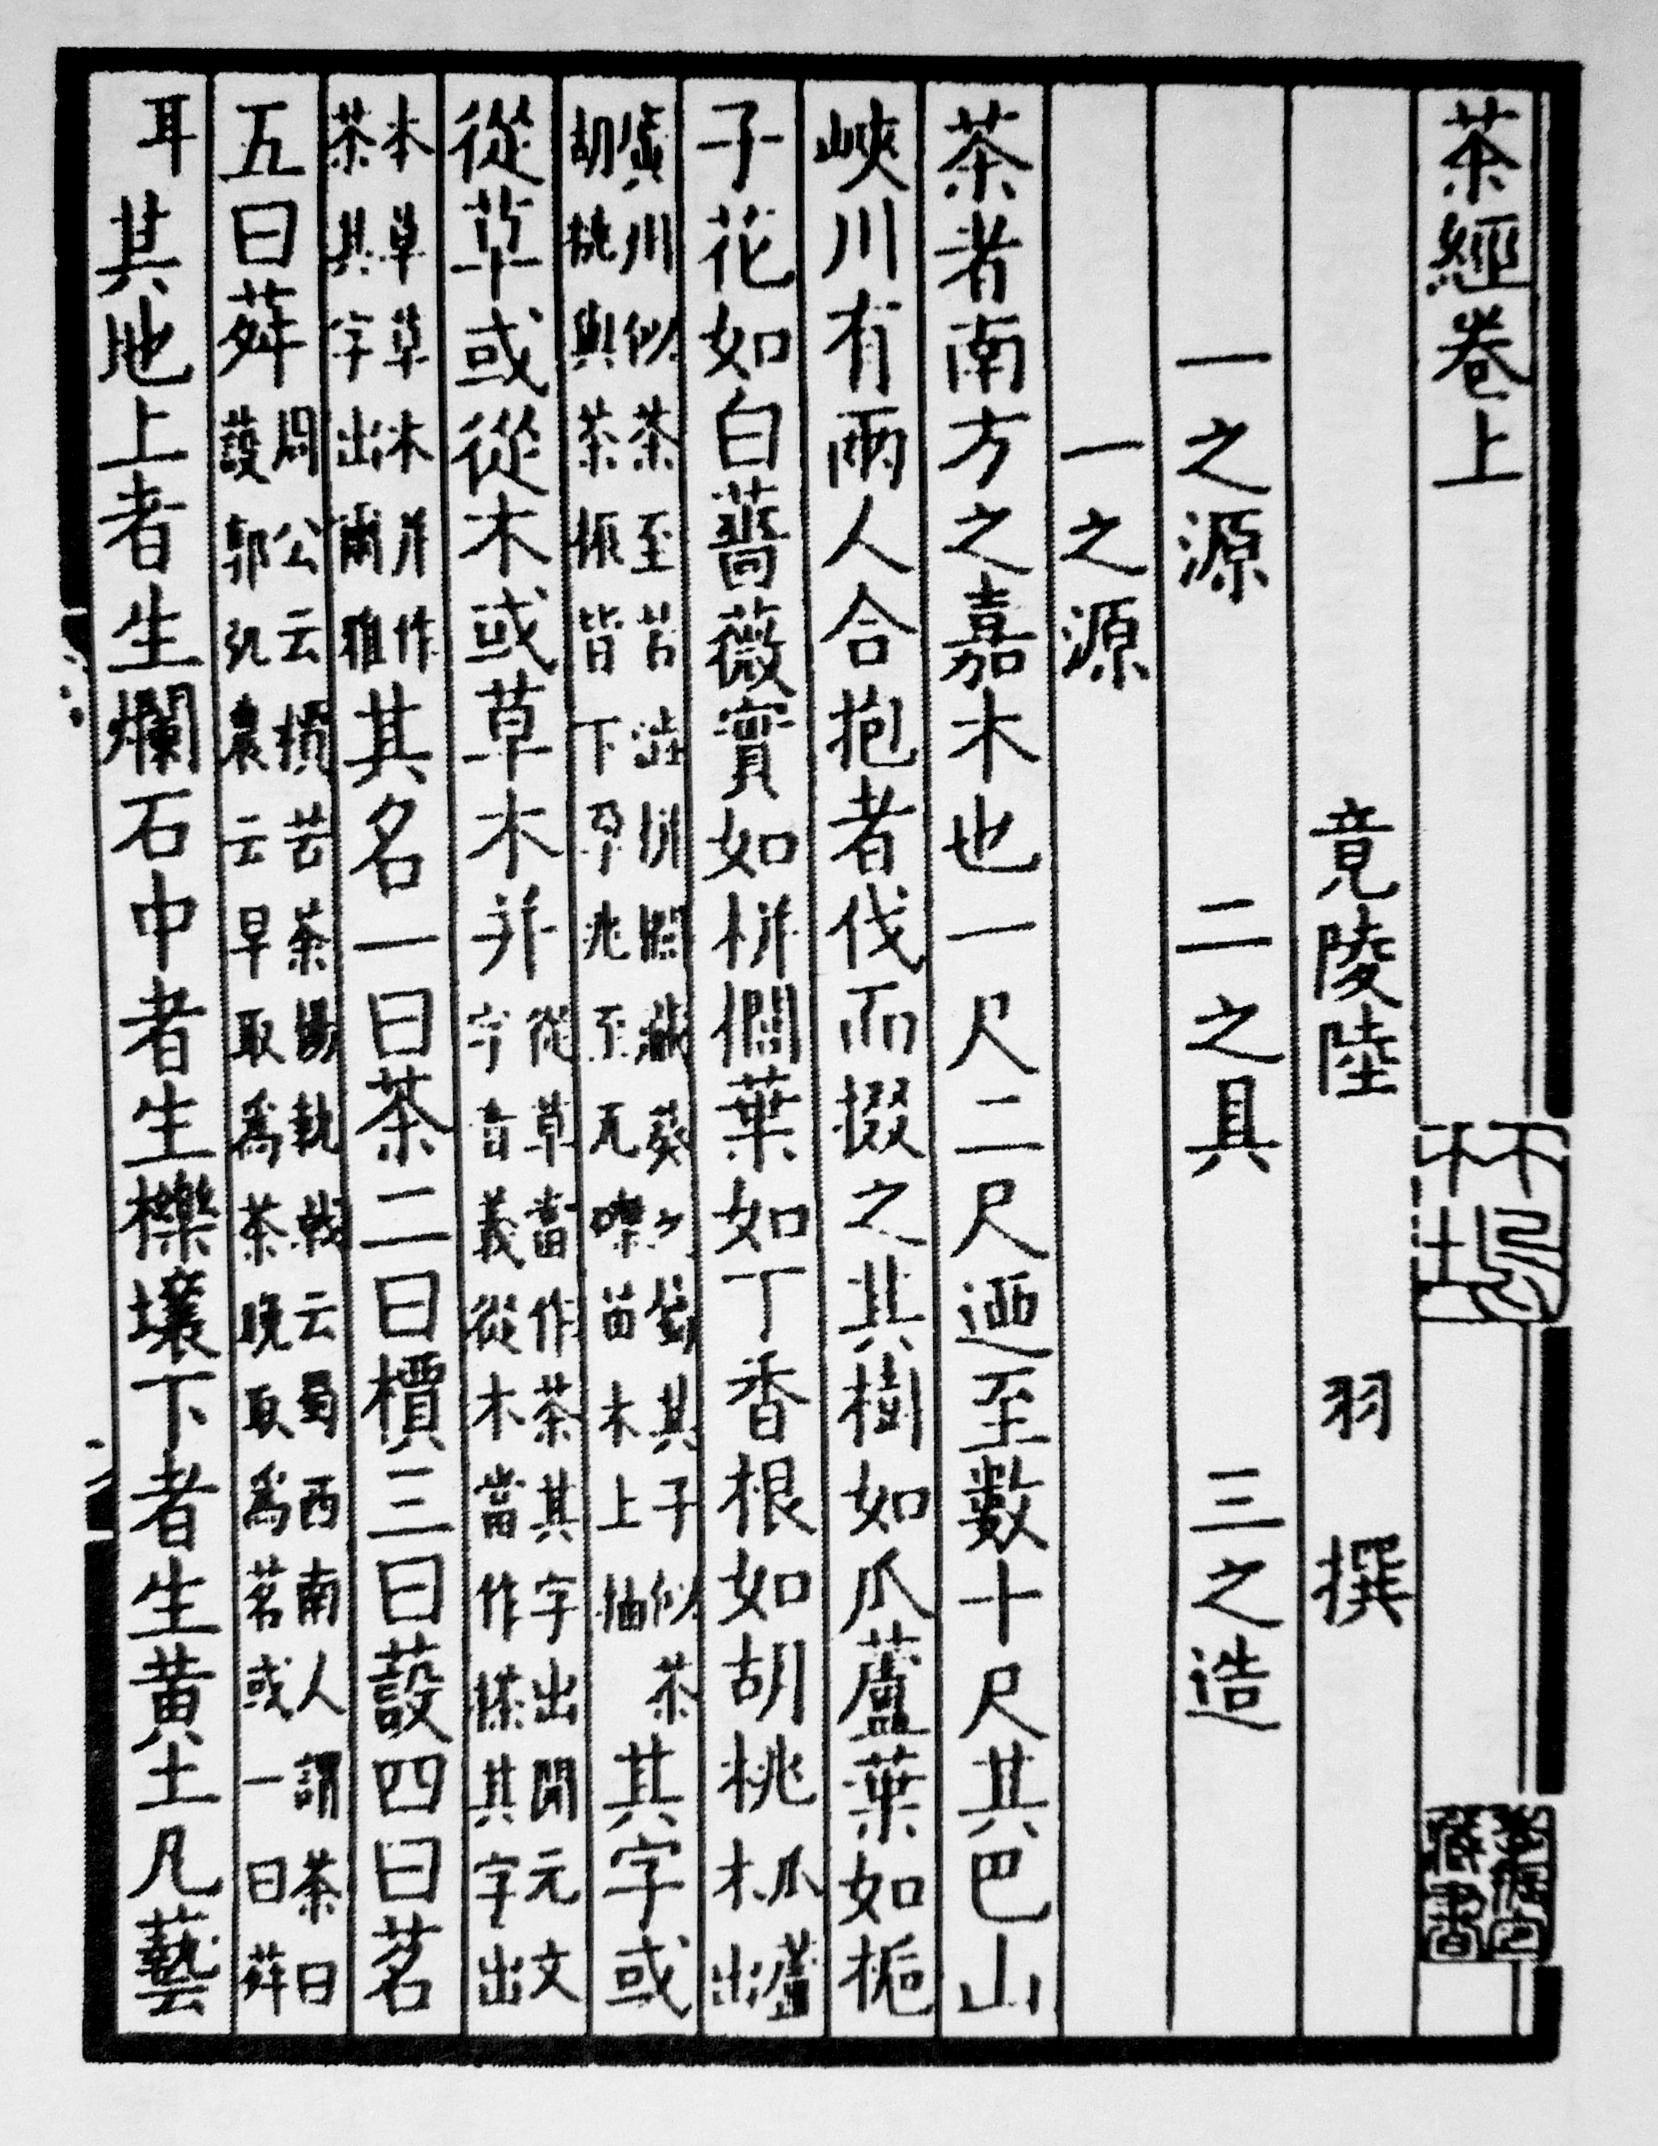 茶經卷上
竟陵陸 羽 撰
一之源 二之具 三之造
一之源
茶者南方之嘉木也一尺二尺迺至數十尺其巴山
峽川有兩人合抱者伐而掇之其樹如瓜蘆葉如梔
子花如白薔薇實如栟櫚葉如丁香根如胡桃瓜蘆木出
廣川似茶至苦澁栟櫚葵之屬其子似茶胡桃與茶根皆下孕兆至瓦礫苗木上抽其字或
從草或從木或草木并從草當作茶其字出開元文字音義從木當作搽其字出
本草草木并作茶其字出爾雅其名一曰茶二曰檟三曰蔎四曰茗
五曰荈周公云檟苦茶揚執戟云蜀西南人謂茶曰蔎郭弘農云早取爲茶晚取爲茗或一曰荈
耳其地上者生爛石中者生櫟壤下者生黃土凡藝